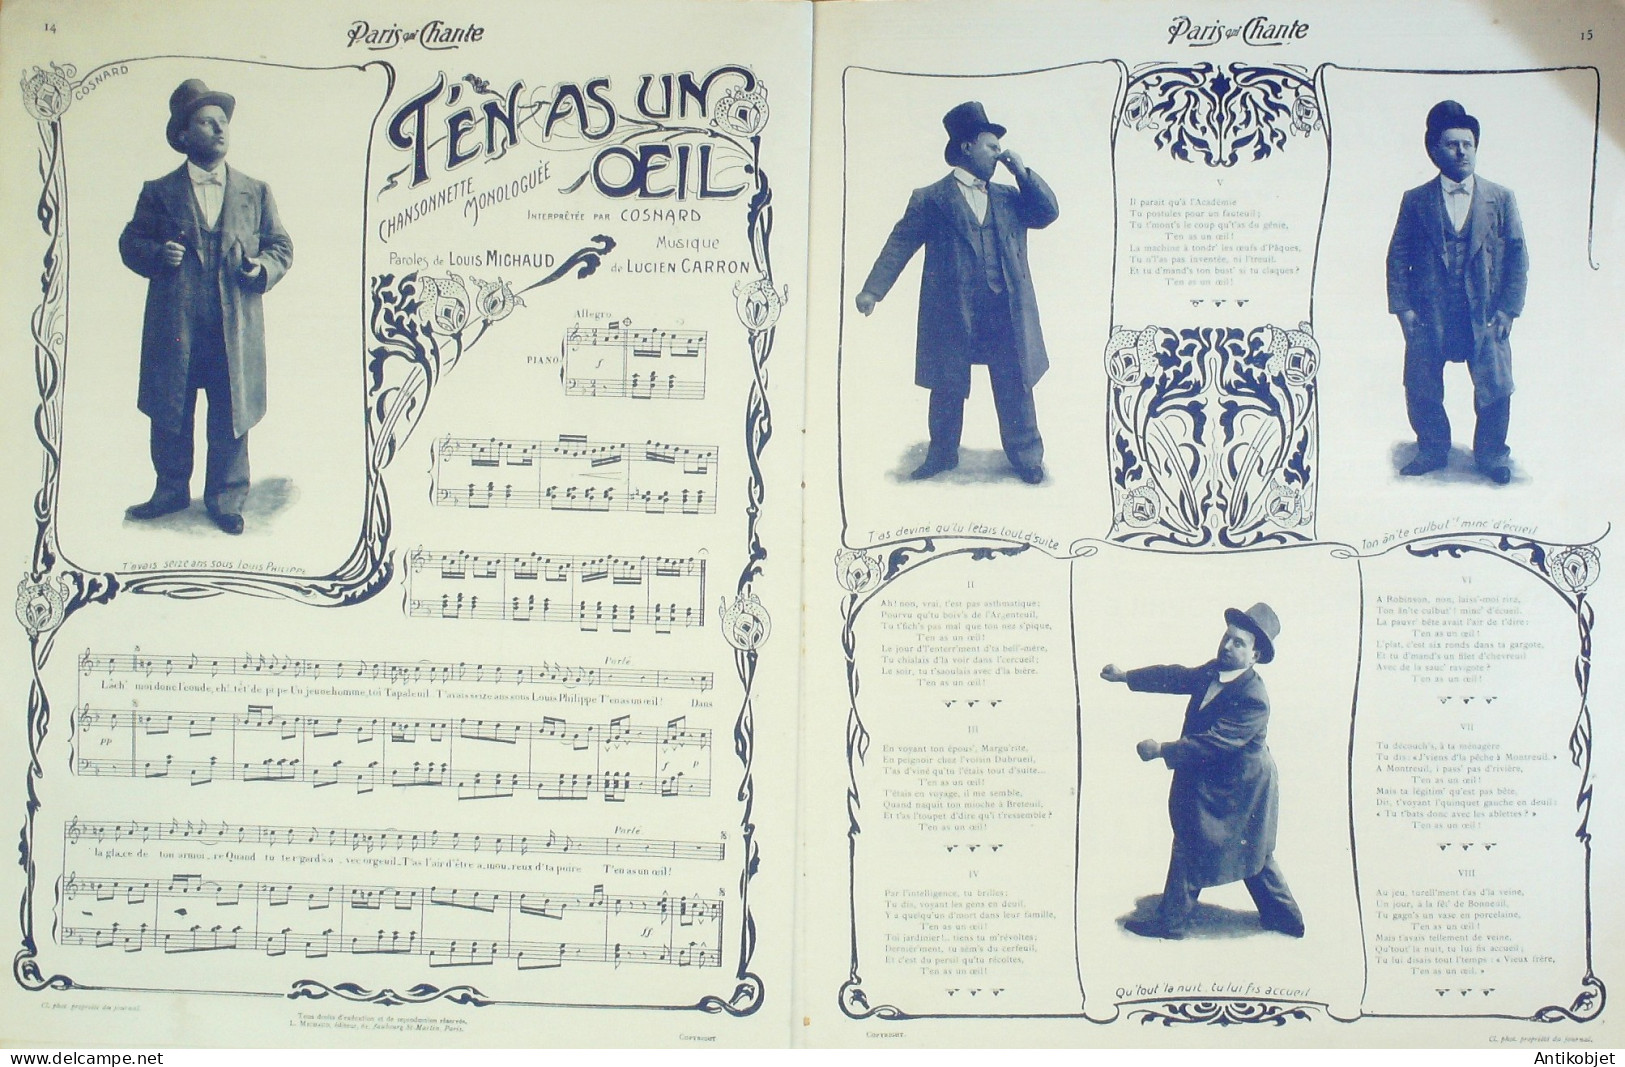 14
Paris qui Chante
COSNARD
T'EN AS UN
ŒIL
CHANSONNETTE
MONOLOGUÉE
INTERPRÊTÉE PAR COSNARD
Paroles de LOUIS MICHAUD
Musique
de LUCIEN CARRON
Allegro.
PIANO
f
T'avais seize ans sous Louis PHILIPPE
Parlé
Lâch' moi donc l'coude, eh! têt' de pi pe Un jeune homme, toi Tapaleuil. T'avais seize ans sous Louis Philippe T'en as un œil! Dans
pp
f p
Parlé
la gla.ce de ton armoi..re Quand tu te r'gard's a.vec orgeuil. T'as l'air d'être a.mou.reux d'ta poire T'en as un œil!
ff
Cl. phot. propriété du journal.
Tous droits d'exécution et de reproduction réservés.
L. MICHAUD, éditeur, 61, faubourg St-Martin, Paris.
COPYRIGHT
Paris qui Chante
15
V
Il parait qu'à l'Académie
Tu postules pour un fauteuil;
Tu t'mont's le coup qu't'as du génie,
T'en as un œil!
La machine à tondr' les œufs d'Pâques,
Tu n'l'as pas inventée, ni l'treuil.
Et tu d'mand's ton bust' si tu claques?
T'en as un œil!
T'as deviné qu'tu l'étais tout d'suite
Ton ân'te culbut'! minc' d'écueil
II
Ah! non, vrai, t'est pas asthmatique;
Pourvu qu'tu boiv's de l'Argenteuil,
Tu t'fich's pas mal que ton nez s'pique,
T'en as un œil!
Le jour d'l'enterr'ment d'ta bell'-mère,
Tu chialais d'la voir dans l'cercueil;
Le soir, tu t'saoulais avec d'la bière.
T'en as un œil!
III
En voyant ton épous', Margu'rite,
En peignoir chez l'voisin Dubrueil,
T'as d'viné qu'tu l'étais tout d'suite...
T'en as un œil!
T'étais en voyage, il me semble,
Quand naquit ton mioche à Breteuil,
Et t'as l'toupet d'dire qu'i t'ressemble?
T'en as un œil!
IV
Par l'intelligence, tu brilles;
Tu dis, voyant les gens en deuil,
Y a quelqu'un d'mort dans leur famille,
T'en as un œil!
Toi jardinier!.. tiens tu m'révoltes;
Dernièr'ment, tu sèm's du cerfeuil,
Et c'est du persil qu'tu récoltes,
T'en as un œil!
Qu'tout 'la nuit, tu lui fis accueil
VI
A Robinson, non, laiss'-moi rire,
Ton ân'te culbut'! minc' d'écueil,
La pauvr' bête avait l'air de t'dire:
T'en as un œil!
L'plat, c'est six ronds dans ta gargote,
Et tu d'mand's un filet d'chevreuil
Avec de la sauc' ravigote?
T'en as un œil!
VII
Tu découch's, à ta ménagère
Tu dis: « J'viens d'la pêche à Montreuil. »
A Montreuil, i pass' pas d'rivière,
T'en as un œil!
Mais ta légitim' qu'est pas bête,
Dit, t'voyant l'quinquet gauche en deuil:
« Tu t'bats donc avec les ablettes? »
T'en as un œil!
VIII
Au jeu, turell'ment t'as d'la veine,
Un jour, à la fêt' de Bonneuil,
Tu gagn's un vase en porcelaine,
T'en as un œil!
Mais t'avais tellement de veine,
Qu'tout' la nuit, tu lui fis accueil;
Tu lui disais tout l'temps: « Vieux frère,
T'en as un œil. »
COPYRIGHT.
Cl. phot. propriété du journal.
Antikobjet